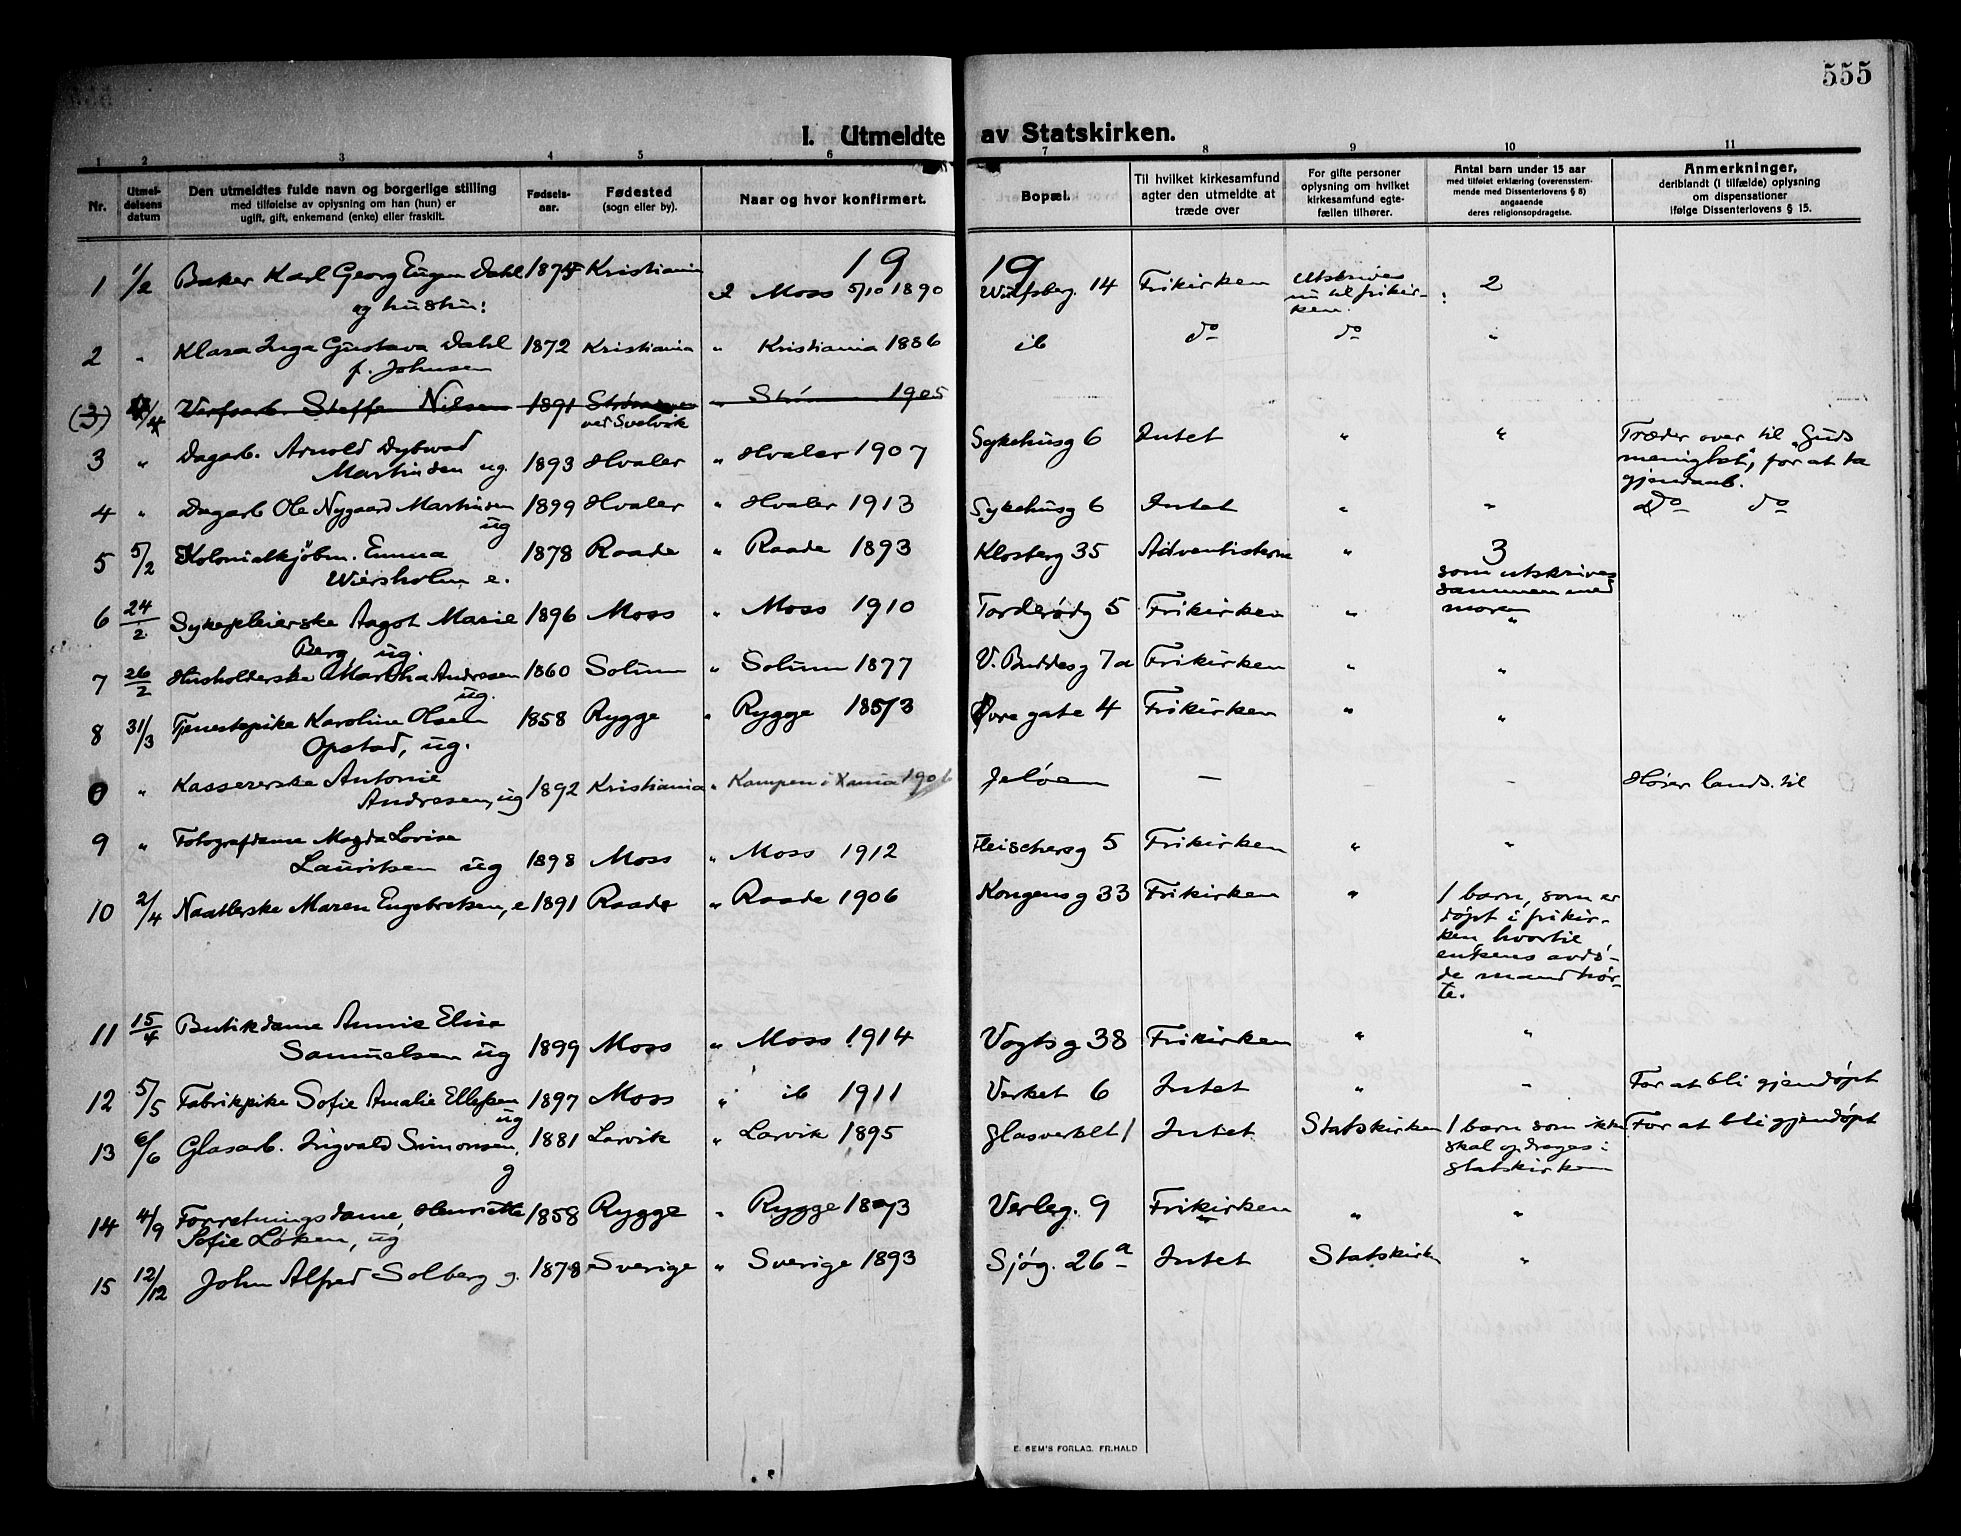 555
I. Utmeldte av Statskirken.
1 2 3 4 5 6 7 8 9 10 11
Nr.
Utmeldelsens datum
Den utmeldtes fulde navn og borgerlige stilling
med tilføielse av oplysning om han (hun) er
ugift, gift, enkemand (enke) eller fraskilt.
Fødselsaar.
Fødested
(sogn eller by).
Naar og hvor konfirmert.
Bopæl.
Til hvilket kirkesamfund
agter den utmeldte at
træde over
For gifte personer
oplysning om hvilket
kirkesamfund egtefællen tilhører.
Antal barn under 15 aar
med tilføiet erklæring (overensstemmende med Dissenterlovens § 8)
angaaende
deres religionsopdragelse.
Anmerkninger,
deriblandt (i tilfælde) oplysning
om dispensationer
ifølge Dissenterlovens § 15.
19 19
1 1/2 Baker Karl Georg Eugen Dahl Kristiania Moss 5/10 1890 14 Frikirken Utskrives 2
og hustru: nu til frikirken.
2 " Klara Inga Gustava Dahl 1872 Kristiania " Kristiania 1886 ib do do "
f. Johnsen
(3) Steffen Nilsen 1891 ved Svelvik 1905
3 " Dagarb. Arnold Dybwad Martinsen ug. 1893 Hvaler " Hvaler 1907 Sykehusg 6 Intet " " Træder over til "Guds
menighet", for at ta
4 " Dagarb Ole Nygaard Martinsen ug 1899 Hvaler " Hvaler 1913 Sykehusg 6 Intet " " do do
5 5/2 Kolonialkjøbm. Emma Wiersholm e. 1878 Raade " Raade 1893 Klosterg 35 Adventisterne " 3
som utskrives
sammen med
moren
6 24/2 Sykepleierske Aagot Marie Berg, ug. 1896 Moss " Moss 1910 Torderødg 5 Frikirken " "
7 26/2 Husholderske Martha Andresen ug. 1860 Solum " Solum 1877 V. Buddesg 7a Frikirken " "
8 31/3 Tjenestepike Karoline Olsen Opstad, ug. 1858 Rygge " Rygge 1873 Øvre gate 4 Frikirken " "
0 " Kassererske Antonie Andresen, ug 1892 Kristiania " Kampen i Xania Jeløen – – Hører lands. til
9 " Fotografdame Magda Lovise Lauritsen ug 1898 Moss " Moss 1912 Fleischersg 5 Frikirken " "
10 2/4 Naatlerske Maren Engebretsen, e 1891 Raade " Raade 1906 Kongensg 33 Frikirken " 1 barn, som er
døpt i frikirken hvortil
enkens avdøde mand hørte.
11 15/4 Butikdame Annie Elise Samuelsen ug 1899 Moss " Moss 1914 Vogtsg 38 Frikirken " "
12 5/5 Fabrikpike Sofie Amalie Ellefsen ug 1897 Moss " ib 1911 Verket 6 Intet " " For at bli gjendøpt
13 6/6 Glasarb. Ingvald Simonsen, g 1881 Larvik " Larvik 1895 Glasverket 1 Intet Statskirken 1 barn som ikke For at bli gjendøpt
skal opdrages i
statskirken
14 4/9 Forretningsdame, Henriette Sofie Løken, ug 1858 Rygge " Rygge 1873 Verleg. 9 Frikirken " "
15 12/12 John Alfred Solberg g. 1878 Sverige " Sverige 1893 Sjøg. 26a Intet Statskirken "
E. SEM'S FORLAG, FR.HALD